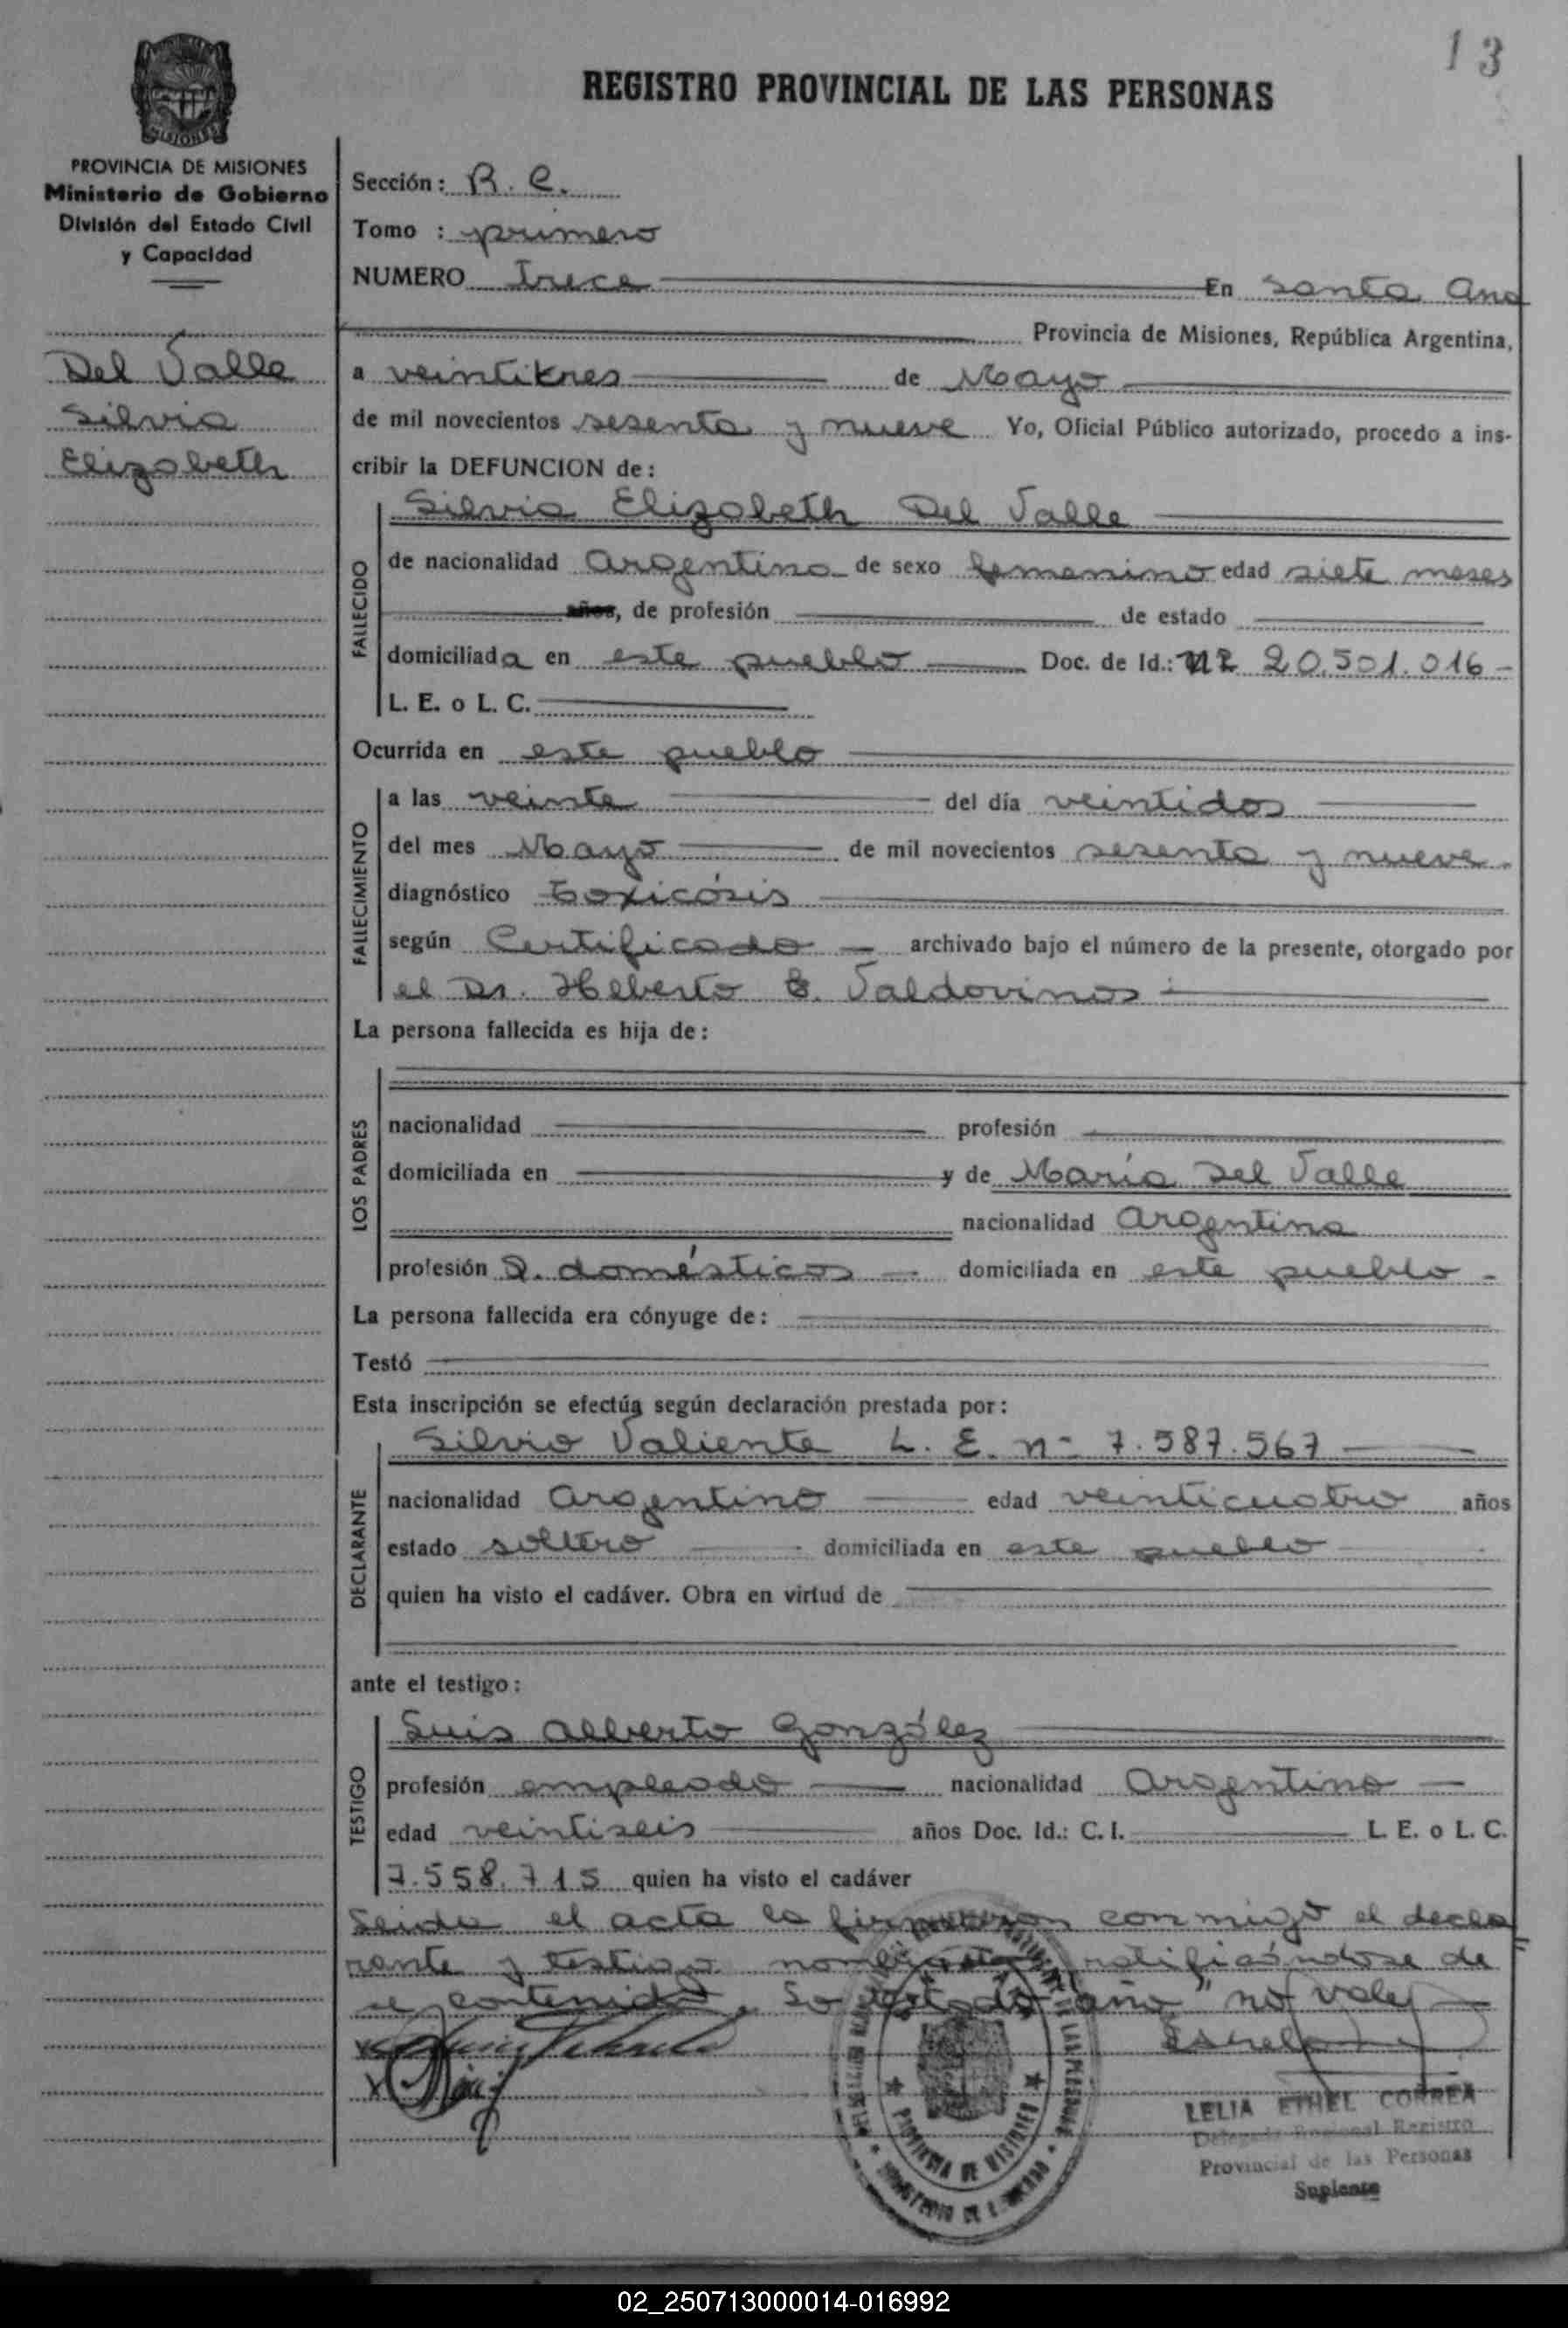 13
REGISTRO PROVINCIAL DE LAS PERSONAS
MISIONES
PROVINCIA DE MISIONES
Ministerio de Gobierno
División del Estado Civil
y Capacidad
Del Valle
Silvia
Elizabeth
Sección: R. C.
Tomo : primero
NUMERO Trece En Santa Ana
Provincia de Misiones, República Argentina,
a veintitres de Mayo
de mil novecientos sesenta y nueve Yo, Oficial Público autorizado, procedo a ins-
cribir la DEFUNCION de:
FALLECIDO
Silvia Elizabeth Del Valle
de nacionalidad Argentina de sexo femenino edad siete meses
años, de profesión de estado
domiciliada en este pueblo Doc. de Id.: Nº 20.501.016 -
L. E. o L. C.
Ocurrida en este pueblo
FALLECIMIENTO
a las veinte del día veintidos
del mes Mayo de mil novecientos sesenta y nueve.
diagnóstico Toxicósis
según Certificado archivado bajo el número de la presente, otorgado por
el Dr. Heberto E. Valdovinos
La persona fallecida es hija de:
LOS PADRES
nacionalidad profesión
domiciliada en y de María Del Valle
nacionalidad Argentina
profesión Q. domésticos domiciliada en este pueblo -
La persona fallecida era cónyuge de:
Testó
Esta inscripción se efectúa según declaración prestada por:
DECLARANTE
Silvio Valiente L. E. nº 7.587.567
nacionalidad Argentino edad veinticuatro años
estado soltero domiciliada en este pueblo
quien ha visto el cadáver. Obra en virtud de
ante el testigo:
TESTIGO
Luis Alberto González
profesión empleado nacionalidad Argentino
edad veintiseis años Doc. Id.: C. I. L. E. o L. C.
7.558.715 quien ha visto el cadáver
Leida el acta la firmaron conmigo el decla
rante y testigo ratificándose de
su contenido. Lo testado "año" no vale
PROVINCIA DE MISIONES
LELIA ETHEL CORREA
Delegada Regional Registro
Provincial de las Personas
Suplente
02_250713000014-016992